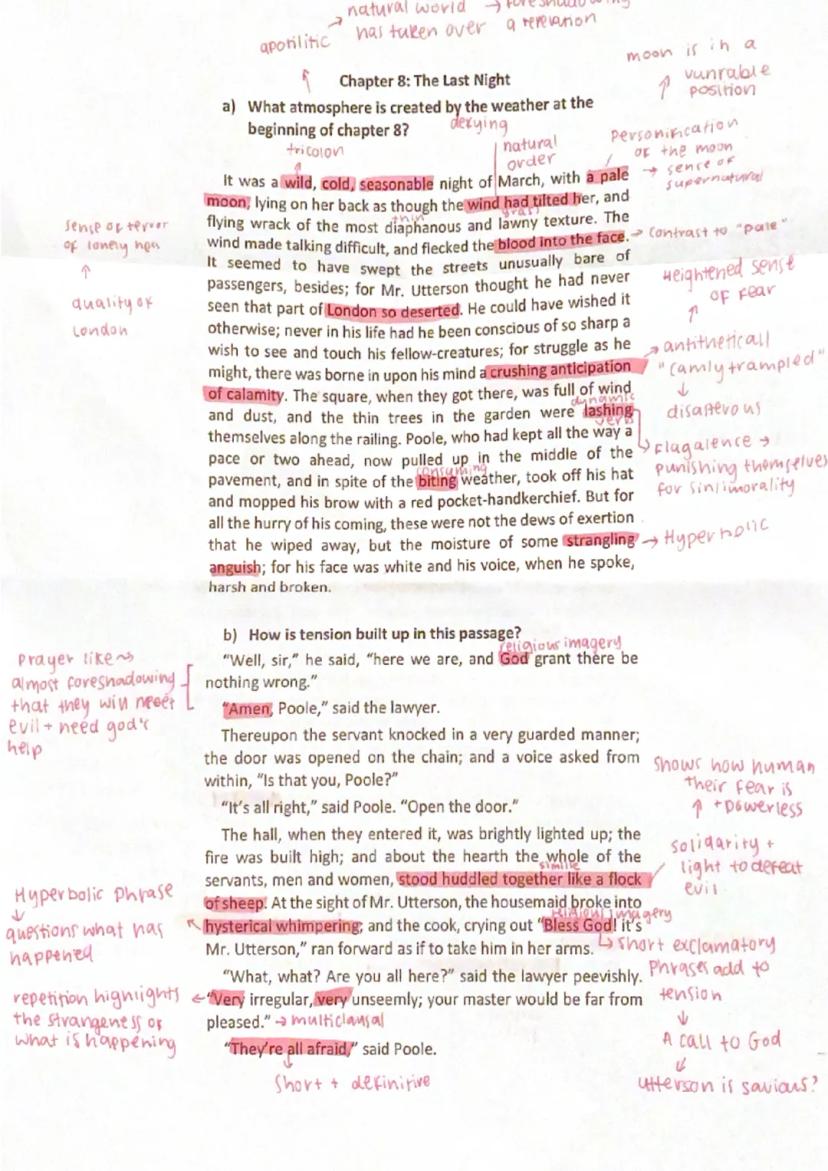 natural world → foreshadowing
apolitic → has taken over a revelation
moon is in a
vunrable
position
Chapter 8: The Last Night
a) What atmosphere is created by the weather at the
beginning of chapter 8?
defying
natural
order
tricolon
Personification
of the moon
→ sense of
supernatural
It was a wild, cold, seasonable night of March, with a pale
moon, lying on her back as though the wind had tilted her, and
thin
flying wrack of the most diaphanous and lawny texture. The
wind made talking difficult, and flecked the blood into the face.
→ contrast to "pale"
It seemed to have swept the streets unusually bare of
passengers, besides; for Mr. Utterson thought he had never
seen that part of London so deserted. He could have wished it
otherwise; never in his life had he been conscious of so sharp a
wish to see and touch his fellow-creatures; for struggle as he
might, there was borne in upon his mind a crushing anticipation
of calamity. The square, when they got there, was full of wind
dynamic
verb
and dust, and the thin trees in the garden were lashing
themselves along the railing. Poole, who had kept all the way a
pace or two ahead, now pulled up in the middle of the
consuming
pavement, and in spite of the biting weather, took off his hat
and mopped his brow with a red pocket-handkerchief. But for
all the hurry of his coming, these were not the dews of exertion
that he wiped away, but the moisture of some strangling
→ Hyperbolic
anguish; for his face was white and his voice, when he spoke,
harsh and broken.
sense of terror
of lonely
↑
quality of
London
Heightened sense
of fear
↑
antitheticall
"camly trampled"
↓
disasterous
flagalence →
punishing themselves
for sin/imorality
b) How is tension built up in this passage?
religious imagery
"Well, sir," he said, "here we are, and God grant there be
nothing wrong."
"Amen, Poole," said the lawyer.
Prayer like ~>
almost foreshadowing
that they will meet
evil + need god's
help
Thereupon the servant knocked in a very guarded manner;
the door was opened on the chain; and a voice asked from
within, "Is that you, Poole?"
"It's all right," said Poole. "Open the door."
The hall, when they entered it, was brightly lighted up; the
fire was built high; and about the hearth the whole of the
simile
servants, men and women, stood huddled together like a flock
of sheep. At the sight of Mr. Utterson, the housemaid broke into
religious imagery
hysterical whimpering; and the cook, crying out "Bless God! it's
Mr. Utterson," ran forward as if to take him in her arms.
Shows how human
their fear is
↑ + powerless
solidarity +
light to defeat
evil
Hyperbolic phrase
↓
questions what has
happened
short exclamatory
Phrases add to
tension
↓
A call to God
↓
Utterson is savious?
"What, what? Are you all here?" said the lawyer peevishly.
"Very irregular, very unseemly; your master would be far from
pleased." → multiclausal
repetition highlights
the strangeness of
what is happening
"They're all afraid," said Poole.
Short + definitive